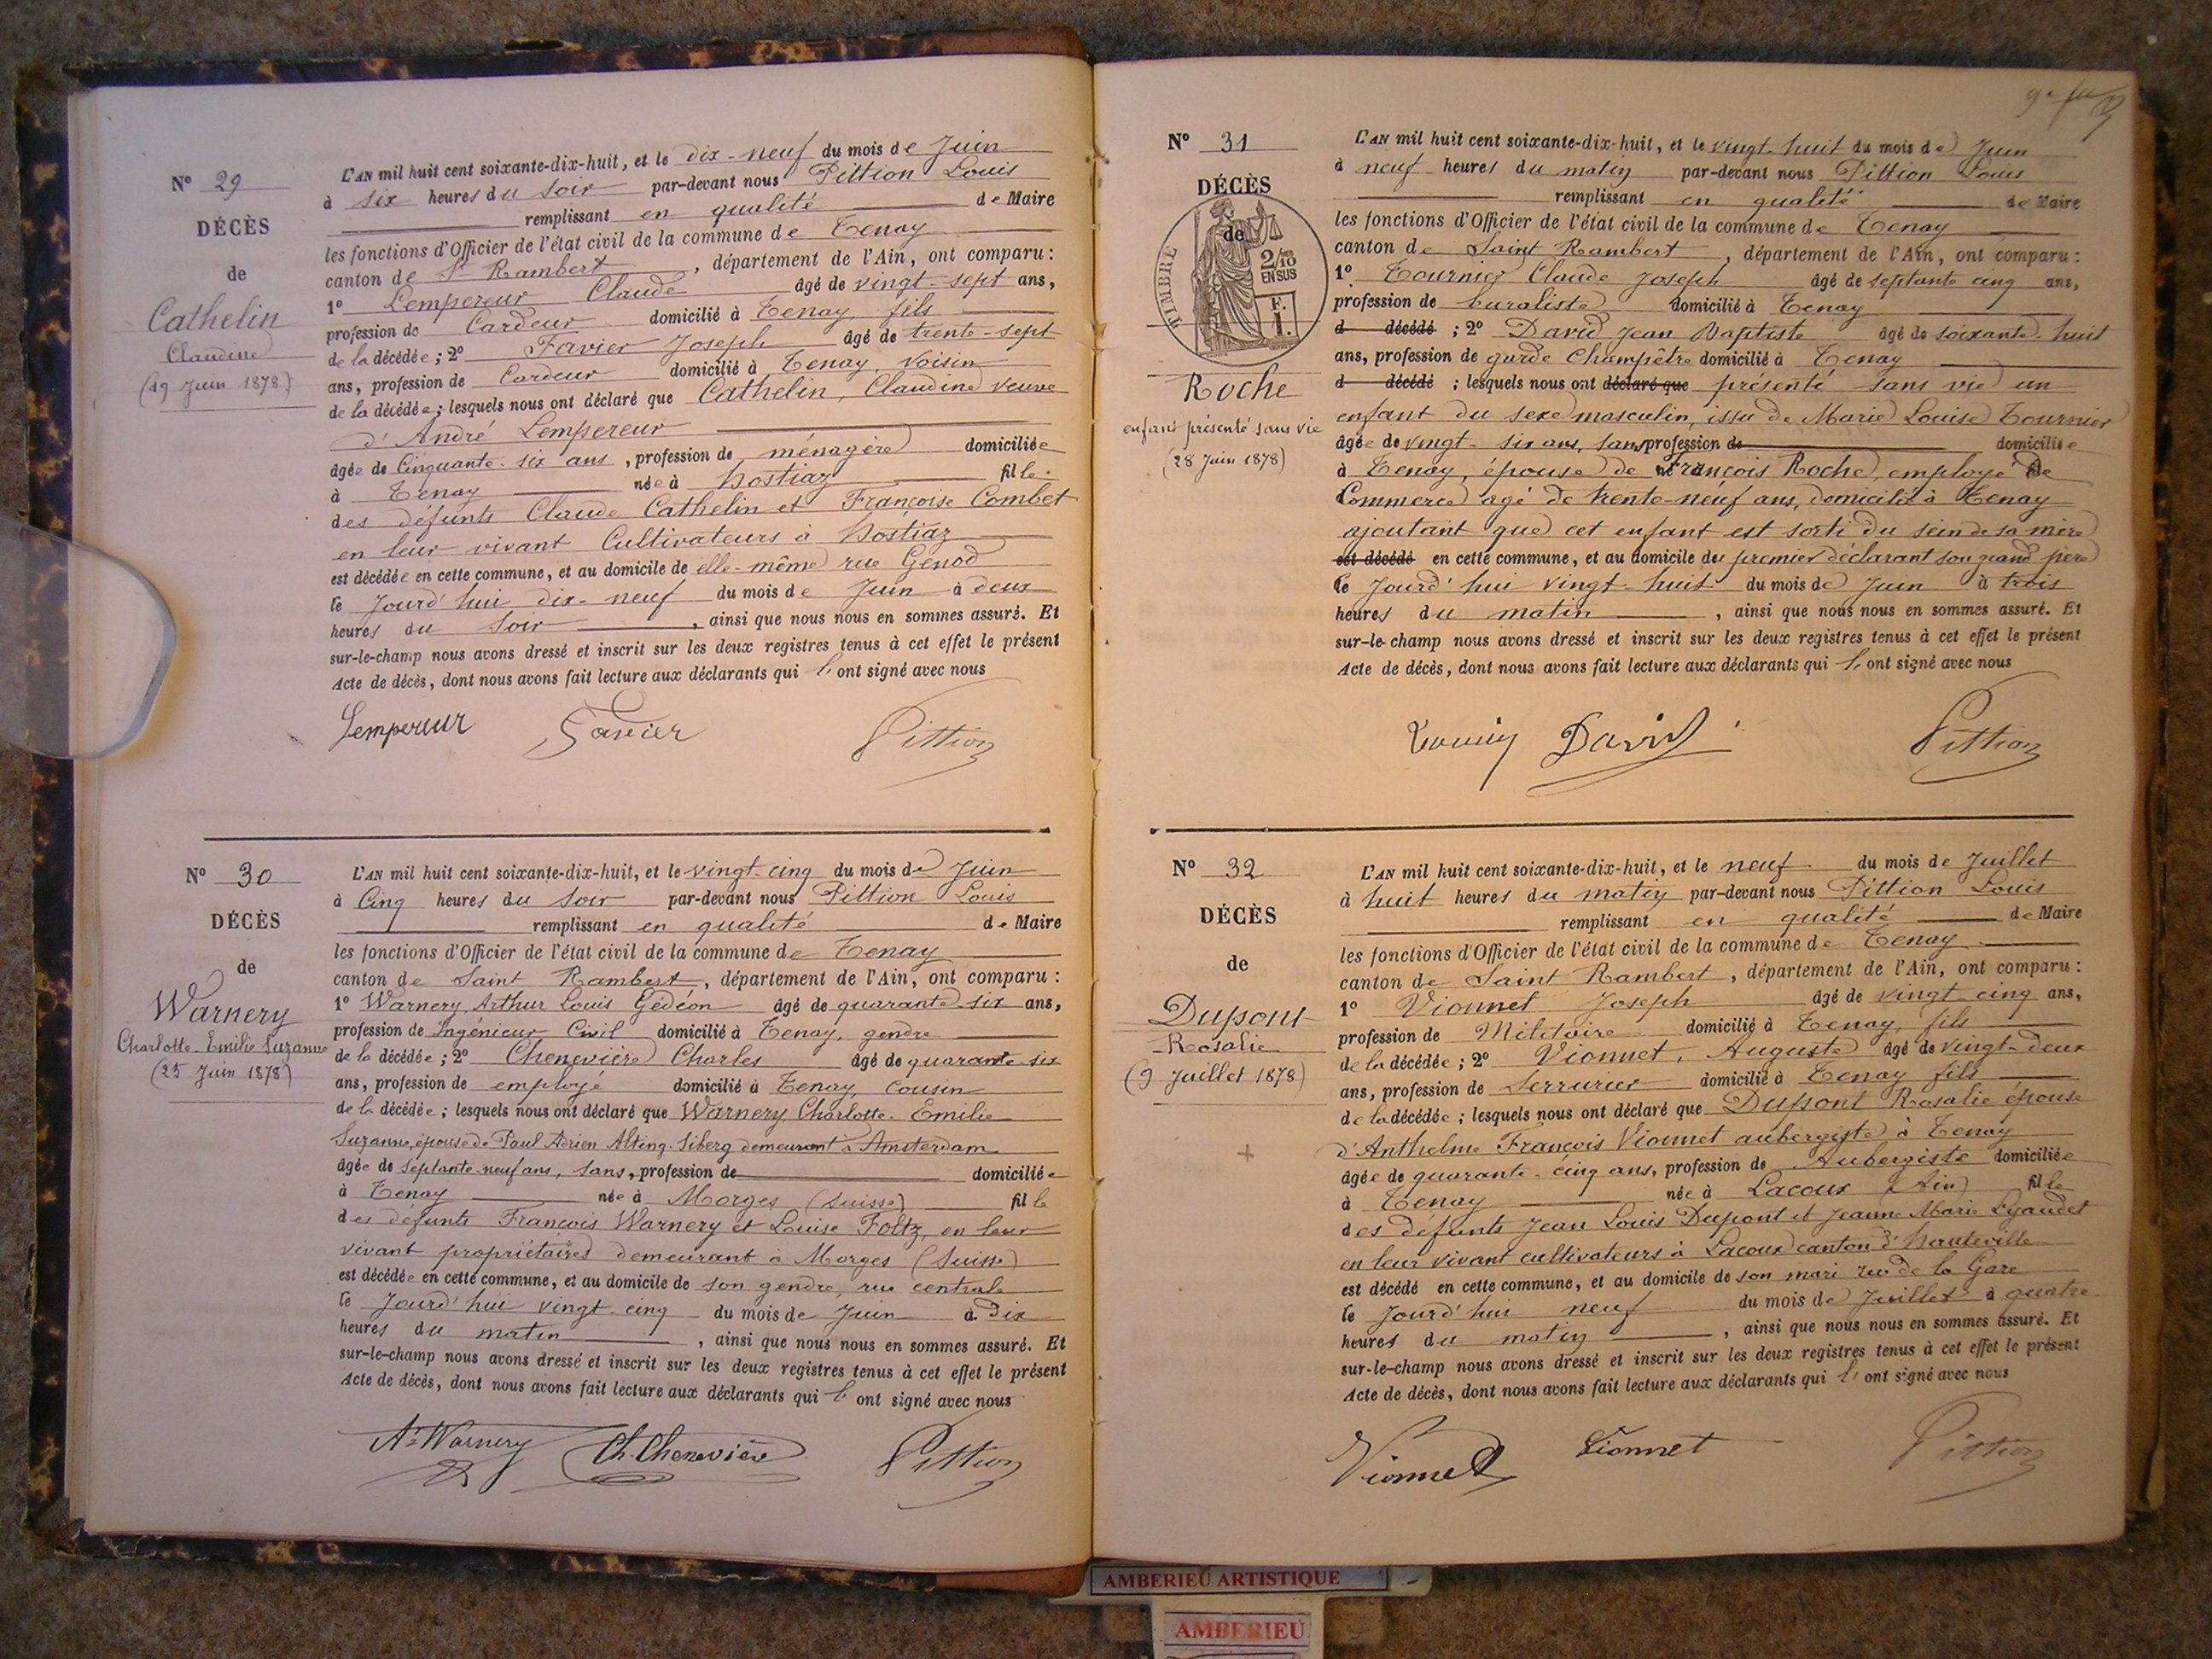 N° 29
DÉCÈS
de
Cathelin
Claudine
(19 Juin 1878)
L'AN mil huit cent soixante-dix-huit, et le dix-neuf du mois de Juin
à six heures du soir par-devant nous Pittion Louis
remplissant en qualité de Maire
les fonctions d'Officier de l'état civil de la commune de Tenay
canton de St Rambert, département de l'Ain, ont comparu :
1° Lempereur Claude âgé de vingt-sept ans,
profession de Cardeur domicilié à Tenay, fils
de la décédée ; 2° Favier Joseph âgé de trente-sept
ans, profession de Cardeur domicilié à Tenay, voisin
de la décédée ; lesquels nous ont déclaré que Cathelin, Claudine veuve
d'André Lempereur
âgée de Cinquante-six ans, profession de ménagère domiciliée
à Tenay née à hostiaz fille
des défunts Claude Cathelin et Françoise Combet
en leur vivant Cultivateurs à hostiaz
est décédée en cette commune, et au domicile de elle-même rue Genod
le jourd'hui dix-neuf du mois de Juin à deux
heures du soir, ainsi que nous nous en sommes assuré. Et
sur-le-champ nous avons dressé et inscrit sur les deux registres tenus à cet effet le présent
Acte de décès, dont nous avons fait lecture aux déclarants qui l'ont signé avec nous
Lempereur Favier Pittion
N° 30
DÉCÈS
de
Warnery
Charlotte-Emilie Suzanne
(25 Juin 1878)
L'AN mil huit cent soixante-dix-huit, et le vingt-cinq du mois de Juin
à Cinq heures du soir par-devant nous Pittion Louis
remplissant en qualité de Maire
les fonctions d'Officier de l'état civil de la commune de Tenay
canton de Saint Rambert, département de l'Ain, ont comparu :
1° Warnery, Arthur Louis Gédéon âgé de quarante-six ans,
profession de Ingénieur Civil domicilié à Tenay, gendre
de la décédée ; 2° Chenevière Charles âgé de quarante-six
ans, profession de employé domicilié à Tenay, Cousin
de la décédée ; lesquels nous ont déclaré que Warnery, Charlotte-Emilie
Suzanne, épouse de Paul Adrien Alting-Siberg demeurant à Amsterdam
âgée de septante-neuf ans, sans, profession de domiciliée
à Tenay née à Morges (Suisse) fille
des défunts François Warnery et Louise Foltz, en leur
vivant propriétaires demeurant à Morges (Suisse)
est décédée en cette commune, et au domicile de son gendre, rue centrale
le jourd'hui vingt-cinq du mois de Juin à Dix
heures du matin, ainsi que nous nous en sommes assuré. Et
sur-le-champ nous avons dressé et inscrit sur les deux registres tenus à cet effet le présent
Acte de décès, dont nous avons fait lecture aux déclarants qui l'ont signé avec nous
Ar Warnery Ch. Chenevière Pittion
N° 31
DÉCÈS
de
TIMBRE
2/10
EN SUS
F.
1.
Roche
enfant présenté sans vie
(28 Juin 1878)
L'AN mil huit cent soixante-dix-huit, et le vingt-huit du mois de Juin
à neuf heures du matin par-devant nous Pittion Louis
remplissant en qualité de Maire
les fonctions d'Officier de l'état civil de la commune de Tenay
canton de Saint Rambert, département de l'Ain, ont comparu :
1° Tournier Claude Joseph âgé de septante cinq ans,
profession de buraliste domicilié à Tenay
d décédé ; 2° David Jean Baptiste âgé de soixante-huit
ans, profession de garde Champêtre domicilié à Tenay
d décédé ; lesquels nous ont déclaré que présenté sans vie un
enfant du sexe masculin, issu de Marie Louise Tournier
âgée de vingt-six ans, sans profession de domiciliée
à Tenay, épouse de né à François Roche, employé de
Commerce agé de trente-neuf ans, domicilié à Tenay
ajoutant que cet enfant est sorti du sein de sa mère
est décédé en cette commune, et au domicile du premier déclarant son grand père
le jourd'hui vingt-huit du mois de Juin à trois
heures du matin, ainsi que nous nous en sommes assuré. Et
sur-le-champ nous avons dressé et inscrit sur les deux registres tenus à cet effet le présent
Acte de décès, dont nous avons fait lecture aux déclarants qui l'ont signé avec nous
David Pittion
N° 32
DÉCÈS
de
Dupont
Rosalie
(9 Juillet 1878)
L'AN mil huit cent soixante-dix-huit, et le neuf du mois de Juillet
à huit heures du matin par-devant nous Pittion Louis
remplissant en qualité de Maire
les fonctions d'Officier de l'état civil de la commune de Tenay
canton de Saint Rambert, département de l'Ain, ont comparu :
1° Vionnet Joseph âgé de vingt-cinq ans,
profession de Militaire domicilié à Tenay, fils
de la décédée ; 2° Vionnet, Auguste âgé de vingt-deux
ans, profession de Serrurier domicilié à Tenay fils
de la décédée ; lesquels nous ont déclaré que Dupont Rosalie épouse
d'Anthelme François Vionnet aubergiste à Tenay
âgée de quarante-cinq ans, profession de Aubergiste domiciliée
à Tenay née à Lacoux (Ain) fille
des défunts Jean Louis Dupont et Jeanne Marie Lyaudet
en leur vivant cultivateurs à Lacoux canton d'hauteville
est décédé en cette commune, et au domicile de son mari rue de la Gare
le jourd'hui neuf du mois de Juillet à quatre
heures du matin, ainsi que nous nous en sommes assuré. Et
sur-le-champ nous avons dressé et inscrit sur les deux registres tenus à cet effet le présent
Acte de décès, dont nous avons fait lecture aux déclarants qui l'ont signé avec nous
Vionnet Vionnet Pittion
AMBERIEU ARTISTIQUE
AMBERIEU